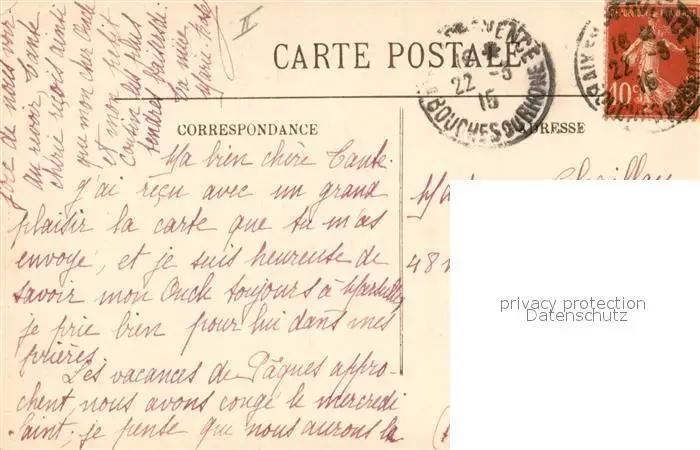 II
CARTE POSTALE
AIX EN PROVENCE
22 -3 15
BOUCHES DU RHONE
10c
CORRESPONDANCE
ADRESSE
Ma bien chère Tante.
j'ai reçu avec un grand
plaisir la carte que tu m'as
envoyé, et je suis heureuse de
savoir mon Oncle toujours à Marseille,
je prie bien pour lui dans mes
prières.
Les vacances de Pâques appro-
chent, nous avons congé le mercredi
Saint, je pense que nous aurons la
joie de nous voir
au revoir, Tante
chérie reçois ainsi
que mon cher Oncle
et mon petit
cousin les plus
tendres baisers.
48
privacy protection
Datenschutz